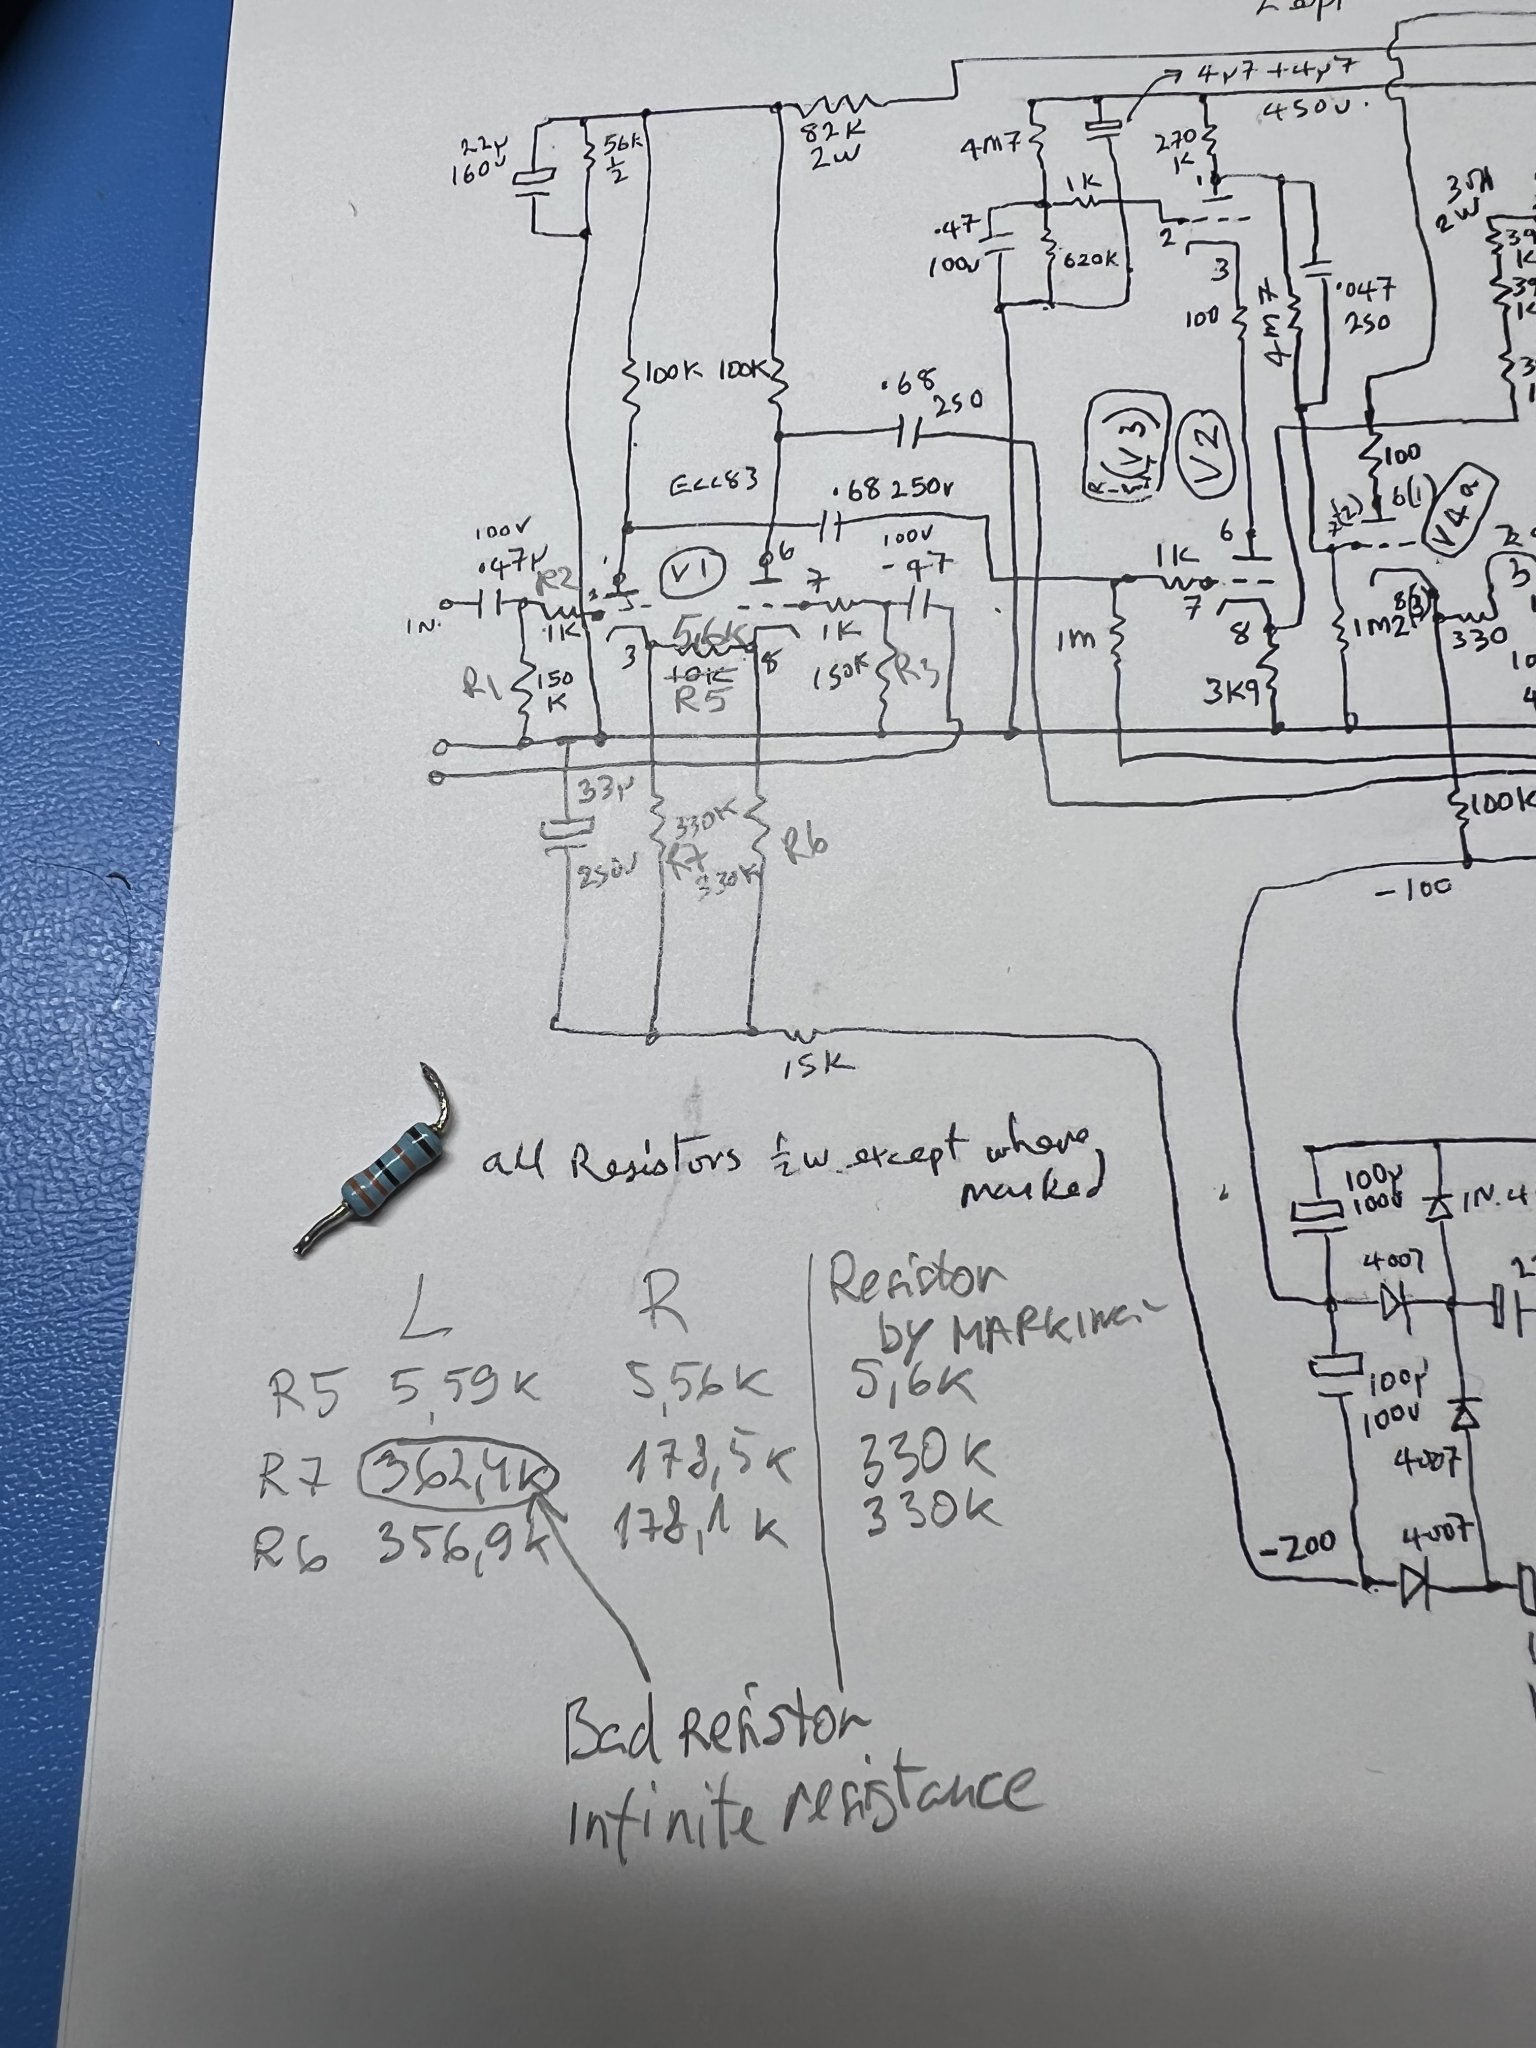 4µ7 + 4µ7
450v.
22µ
160v
56k
1/2
82K
2W
4M7
270
K
1K
1
2
3
.47
100v
620K
100
4M7
.047
250
2W
39
K
39
K
100K
100K
.68
250
ECC83
.68 250v
V2
100
6(1)
V4a
100v
.47µ
R2
1
V1
6
7
100v
.47
1K
7
6
8
IN.
1K
3
5,6K
10K
R5
8
1K
150K
R3
1M
3K9
1M2
8(3)
330
R1
150
K
33µ
250v
330K
R7
330K
R6
100K
-100
15K
all Resistors 1/2 w except where
marked
100µ
100v
1N.4
4007
100µ
100v
4007
-200
4007
L
R
Resistor
by MARKING
R5 5,59K 5,56K 5,6K
R7 362,4K 178,5K 330K
R6 356,9K 178,1K 330K
Bad Resistor
Infinite resistance